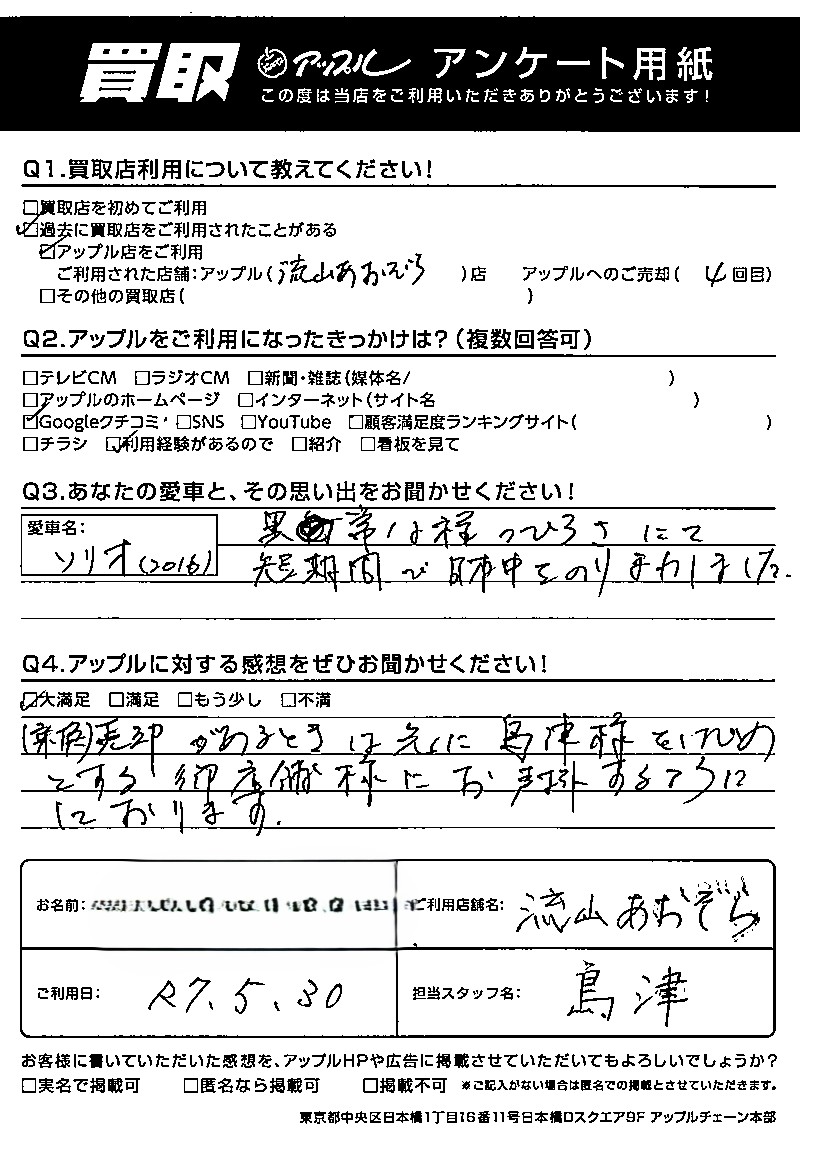 買取 アップル アンケート用紙
この度は当店をご利用いただきありがとうございます！
Q1.買取店利用について教えてください！
□買取店を初めてご利用
☑過去に買取店をご利用されたことがある
☑アップル店をご利用
ご利用された店舗：アップル（流山あおぞら）店 アップルへのご売却（4回目）
□その他の買取店（ ）
Q2.アップルをご利用になったきっかけは？（複数回答可）
□テレビCM □ラジオCM □新聞・雑誌（媒体名/ ）
□アップルのホームページ □インターネット（サイト名 ）
☑Googleクチコミ □SNS □YouTube □顧客満足度ランキングサイト（ ）
□チラシ ☑利用経験があるので □紹介 □看板を見て
Q3.あなたの愛車と、その思い出をお聞かせください！
愛車名：
ソリオ(2016)
のひろさにて
短期間で日本中をのりまわしました.
Q4.アップルに対する感想をぜひお聞かせください！
☑大満足 □満足 □もう少し □不満
売却があるときは先に島津様をはじめ
とする御店舗様にお声掛するように
しております.
お名前：
ご利用店舗名：流山あおぞら
ご利用日：R7.5.30
担当スタッフ名：島津
お客様に書いていただいた感想を、アップルHPや広告に掲載させていただいてもよろしいでしょうか？
□実名で掲載可 □匿名なら掲載可 □掲載不可 ※ご記入がない場合は匿名での掲載とさせていただきます。
東京都中央区日本橋1丁目16番11号日本橋Dスクエア9F アップルチェーン本部